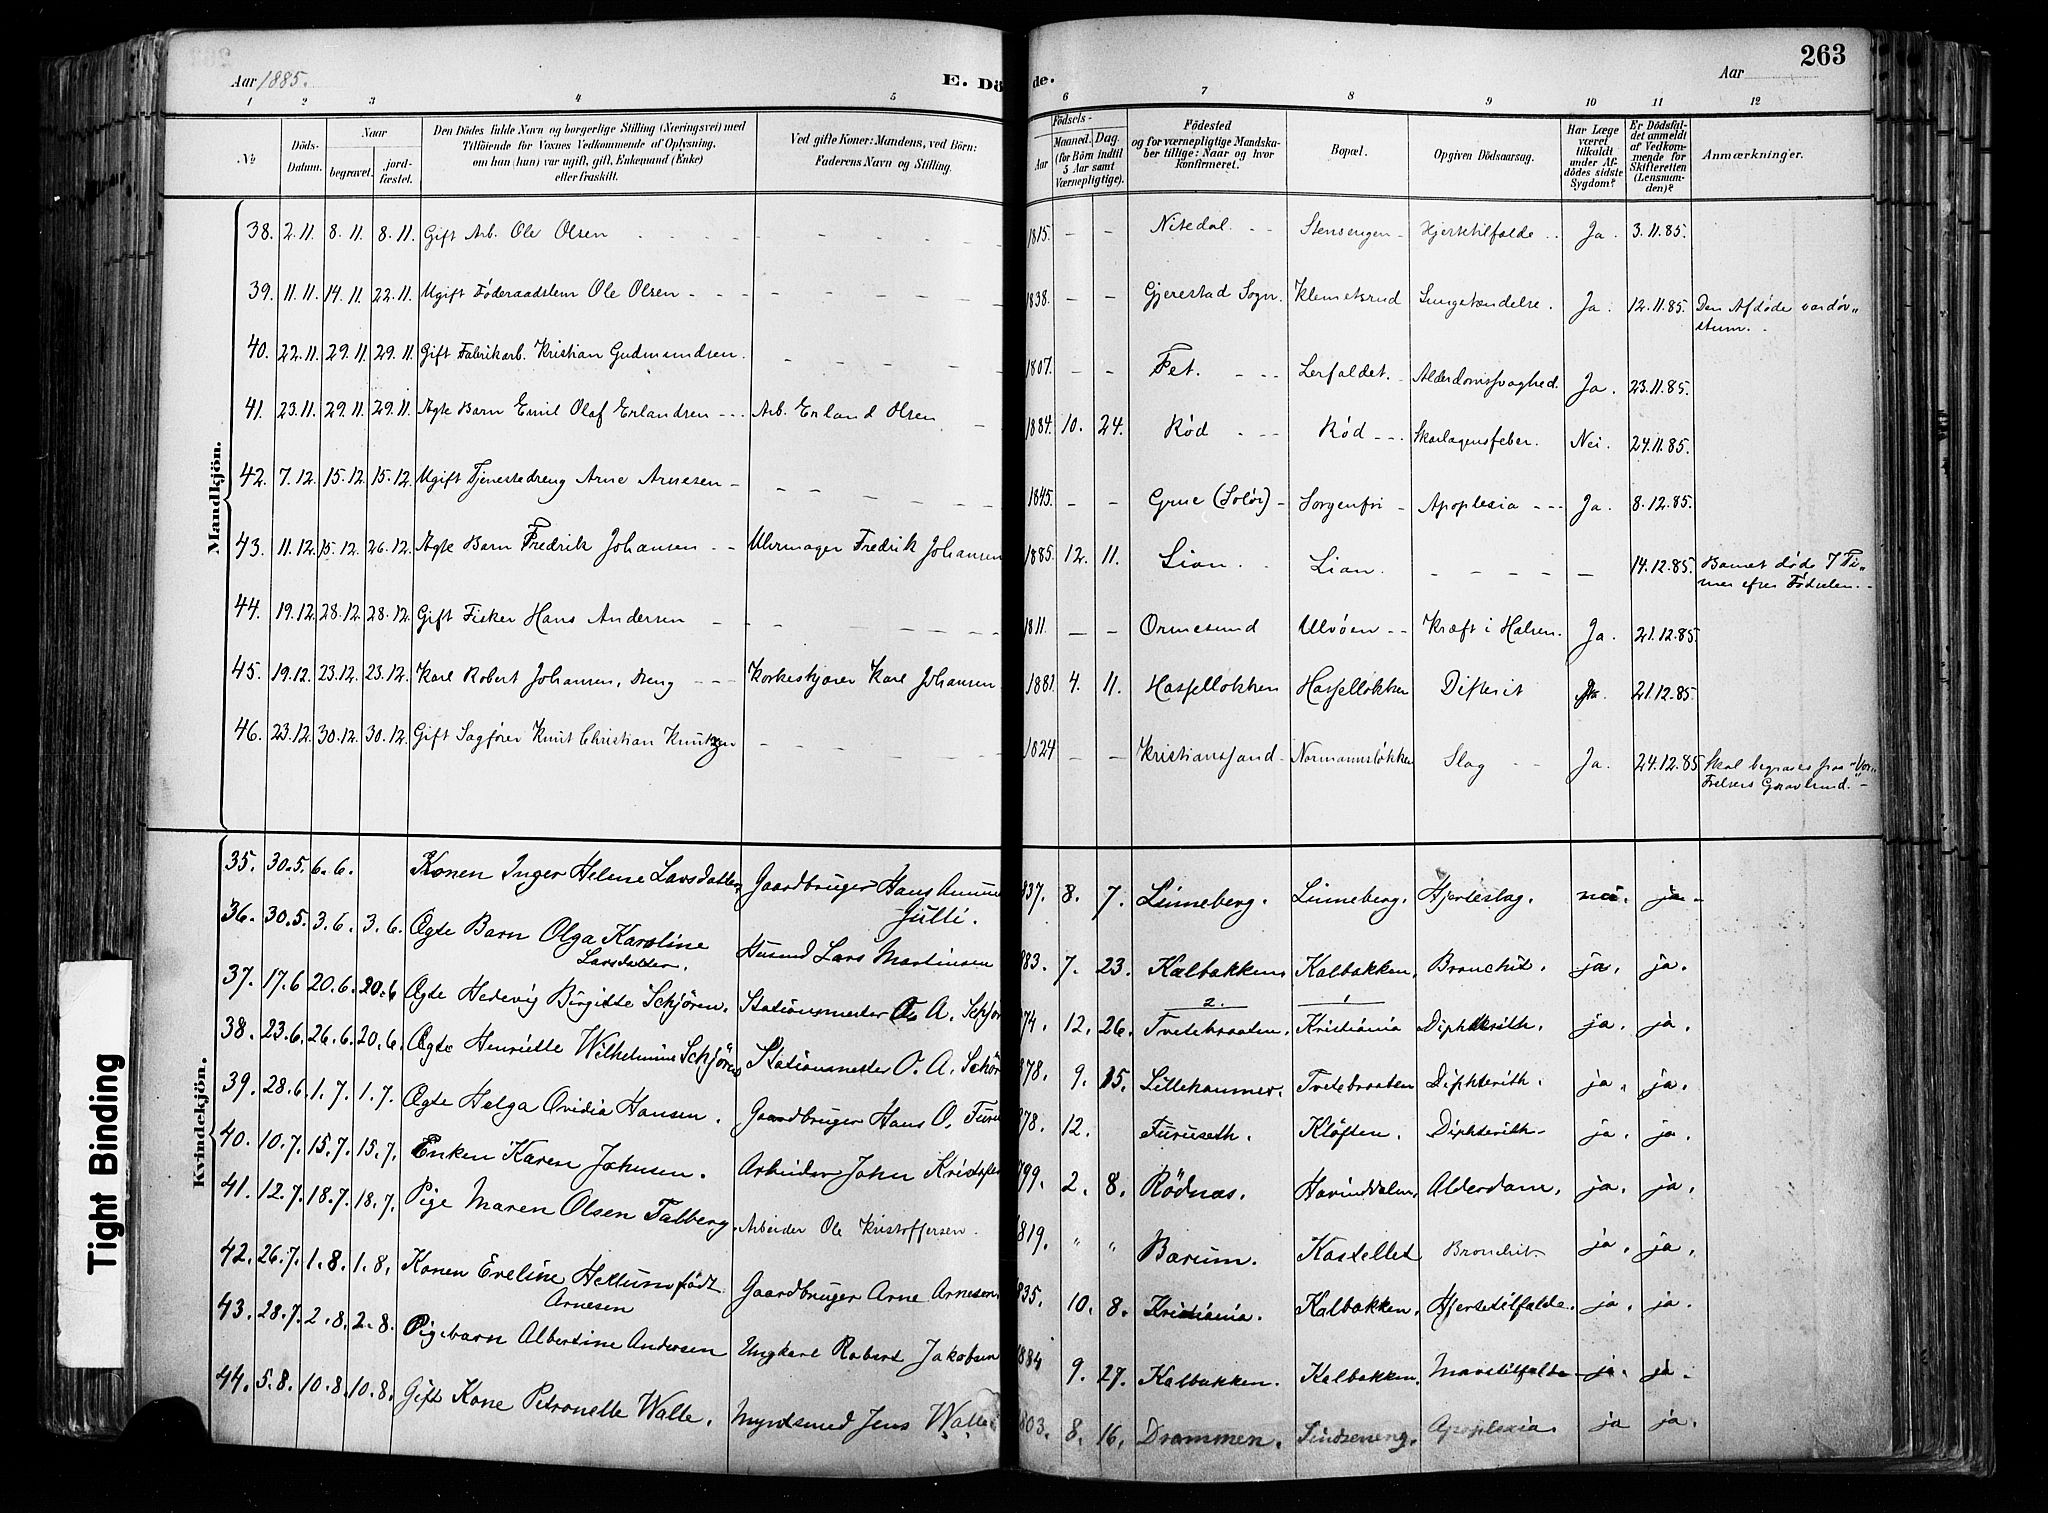 263
Aar 1885.
E. Dö de.
Aar
1 2 3 4 5 6 7 8 9 10 11 12
№
Döds-Datum.
Naar
begravet.
jord-fæstet.
Den Dödes fulde Navn og borgerlige Stilling (Næringsvei) med Tilföiende for Voxnes Vedkommende af Oplysning, om han (hun) var ugift, gift, Enkemand (Enke) eller fraskilt.
Ved gifte Koner: Mandens, ved Börn: Faderens Navn og Stilling.
Födsels-
Aar
Maaned. Dag.
(for Börn indtil 5 Aar samt Værnepligtige).
Födested og for værnepligtige Mandska-ber tillige: Naar og hvor konfirmeret.
Bopæl.
Opgiven Dödsaarsag.
Har Læge været tilkaldt under Af-dödes sidste Sygdom?
Er Dödsfal-det anmeldt af Vedkom-mende for Skifteretten (Lensman-den)?
Anmærkninger.
Mandkjön.
38. 2.11. 8.11. 8.11. Gift Arb. Ole Olsen 1815. — — Nitedal. Stensengen Hjertetilfælde Ja. 3.11.85.
39. 11.11. 14.11. 22.11. Ugift Føderaadslem Ole Olsen 1838. — — Gjerestad Sogn. Klemetsrud Lungebetændelse. Ja. 12.11.85. Den Afdøde var døv-stum.
40. 22.11. 29.11. 29.11. Gift Fabrikarb. Kristian Gudmundsen. 1807. — — Fet. Lerfaldet. Alderdomssvaghed. Ja. 23.11.85.
41. 23.11. 29.11. 29.11. Ægte Barn Emil Olaf Erlandsen Arb. Erland Olsen 1884. 10. 24. Rød Rød Skarlagensfeber. Nei. 24.11.85.
42. 7.12. 15.12. 15.12. Ugift Tjenestedreng Arne Arnesen 1845. — — Grue (Solør) Sorgenfri Apoplexia Ja. 8.12.85.
43. 11.12. 15.12. 26.12. Ægte Barn Fredrik Johansen Uhrmager Fredrik Johansen 1885. 12. 11. Lian. Lian. — 14.12.85. Barnet døde 7 Ti-mer efter Fødselen.
44. 19.12. 28.12. 28.12. Gift Fisker Hans Andersen 1811. — — Ormesund Ulvøen Kræft i Halsen. Ja. 21.12.85
45. 19.12. 23.12. 23.12. Karl Robert Johansen, Dreng Korkeskjærer Karl Johansen 1881. 4. 11. Hasselløkken Hasselløkken Difterit Ja. 21.12.85
46. 23.12. 30.12. 30.12. Gift Sagfører Knut Christian Knutzen 1824 — — Kristianssand Normannsløkken Slag Ja. 24.12.85 Skal begraves paa "Vor Frelsers Gravlund."
Kvindekjön.
35. 30.5. 6.6. Konen Inger Helene Larsdatter, Gaardbruger Hans Amun Julli. 837. 8. 7. Linneberg. Linneberg. Hjerteslag. nei. ja.
36. 30.5. 3.6. 3.6. Ægte Barn Olga Karoline Larsdatter. Husmd Lars Martinsen 883. 7. 23. Kalbakken Kalbakken. Bronchit. ja. ja.
37. 17.6 20.6. 20.6 Ægte Hedevig Birgitte Schjören. Stationsmester O. A. Schjör 874. 12. 26. 2. Tvetebraaten. 1 Kristiania Diphterith. ja. ja.
38. 23.6. 26.6. 20.6. Ægte Henriette Wilhelmine Schjören Stationsmester O. A. Schör 878. 9. 15. Lillehammer. Tvetebraaten Diphterith. ja. ja.
39. 28.6 1.7. 1.7. Ægte Helga Ovidia Hansen. Gaardbruger Hans O. Furu 878. 12. Furuseth. Kløften. Diphterith ja. ja.
40. 10.7. 15.7. 15.7. Enken Karen Johnsen. Arbeider John Kristof 799. 2. 8. Rödnæs. Havinddalen. Alderdom. ja. ja.
41. 12.7. 18.7. 18.7. Pige Maren Olsen Falberg. Arbeider Ole Kristoffersen. 819. " " Bærum. Kastellet Bronchit. ja. ja.
42. 26.7. 1.8. 1.8. Konen Eveline Hellum födt Arnesen Gaardbruger Arne Arnesen. 835. 10. 8. Kristiania. Kalbakken. Hjertetilfælde. ja. ja.
43. 28.7. 2.8. 2.8. Pigebarn Albertine Andersen Ungkarl Robert Jakobsen 1884 9. 27. Kalbakken. Kalbakken. Mavetilfælde ja. ja.
44. 5.8. 10.8. 10.8. Gift Kone Petronelle Walle. Myntsmed Jens Walle 803. 8. 16. Drammen. Apoplexia. ja ja.
Tight Binding